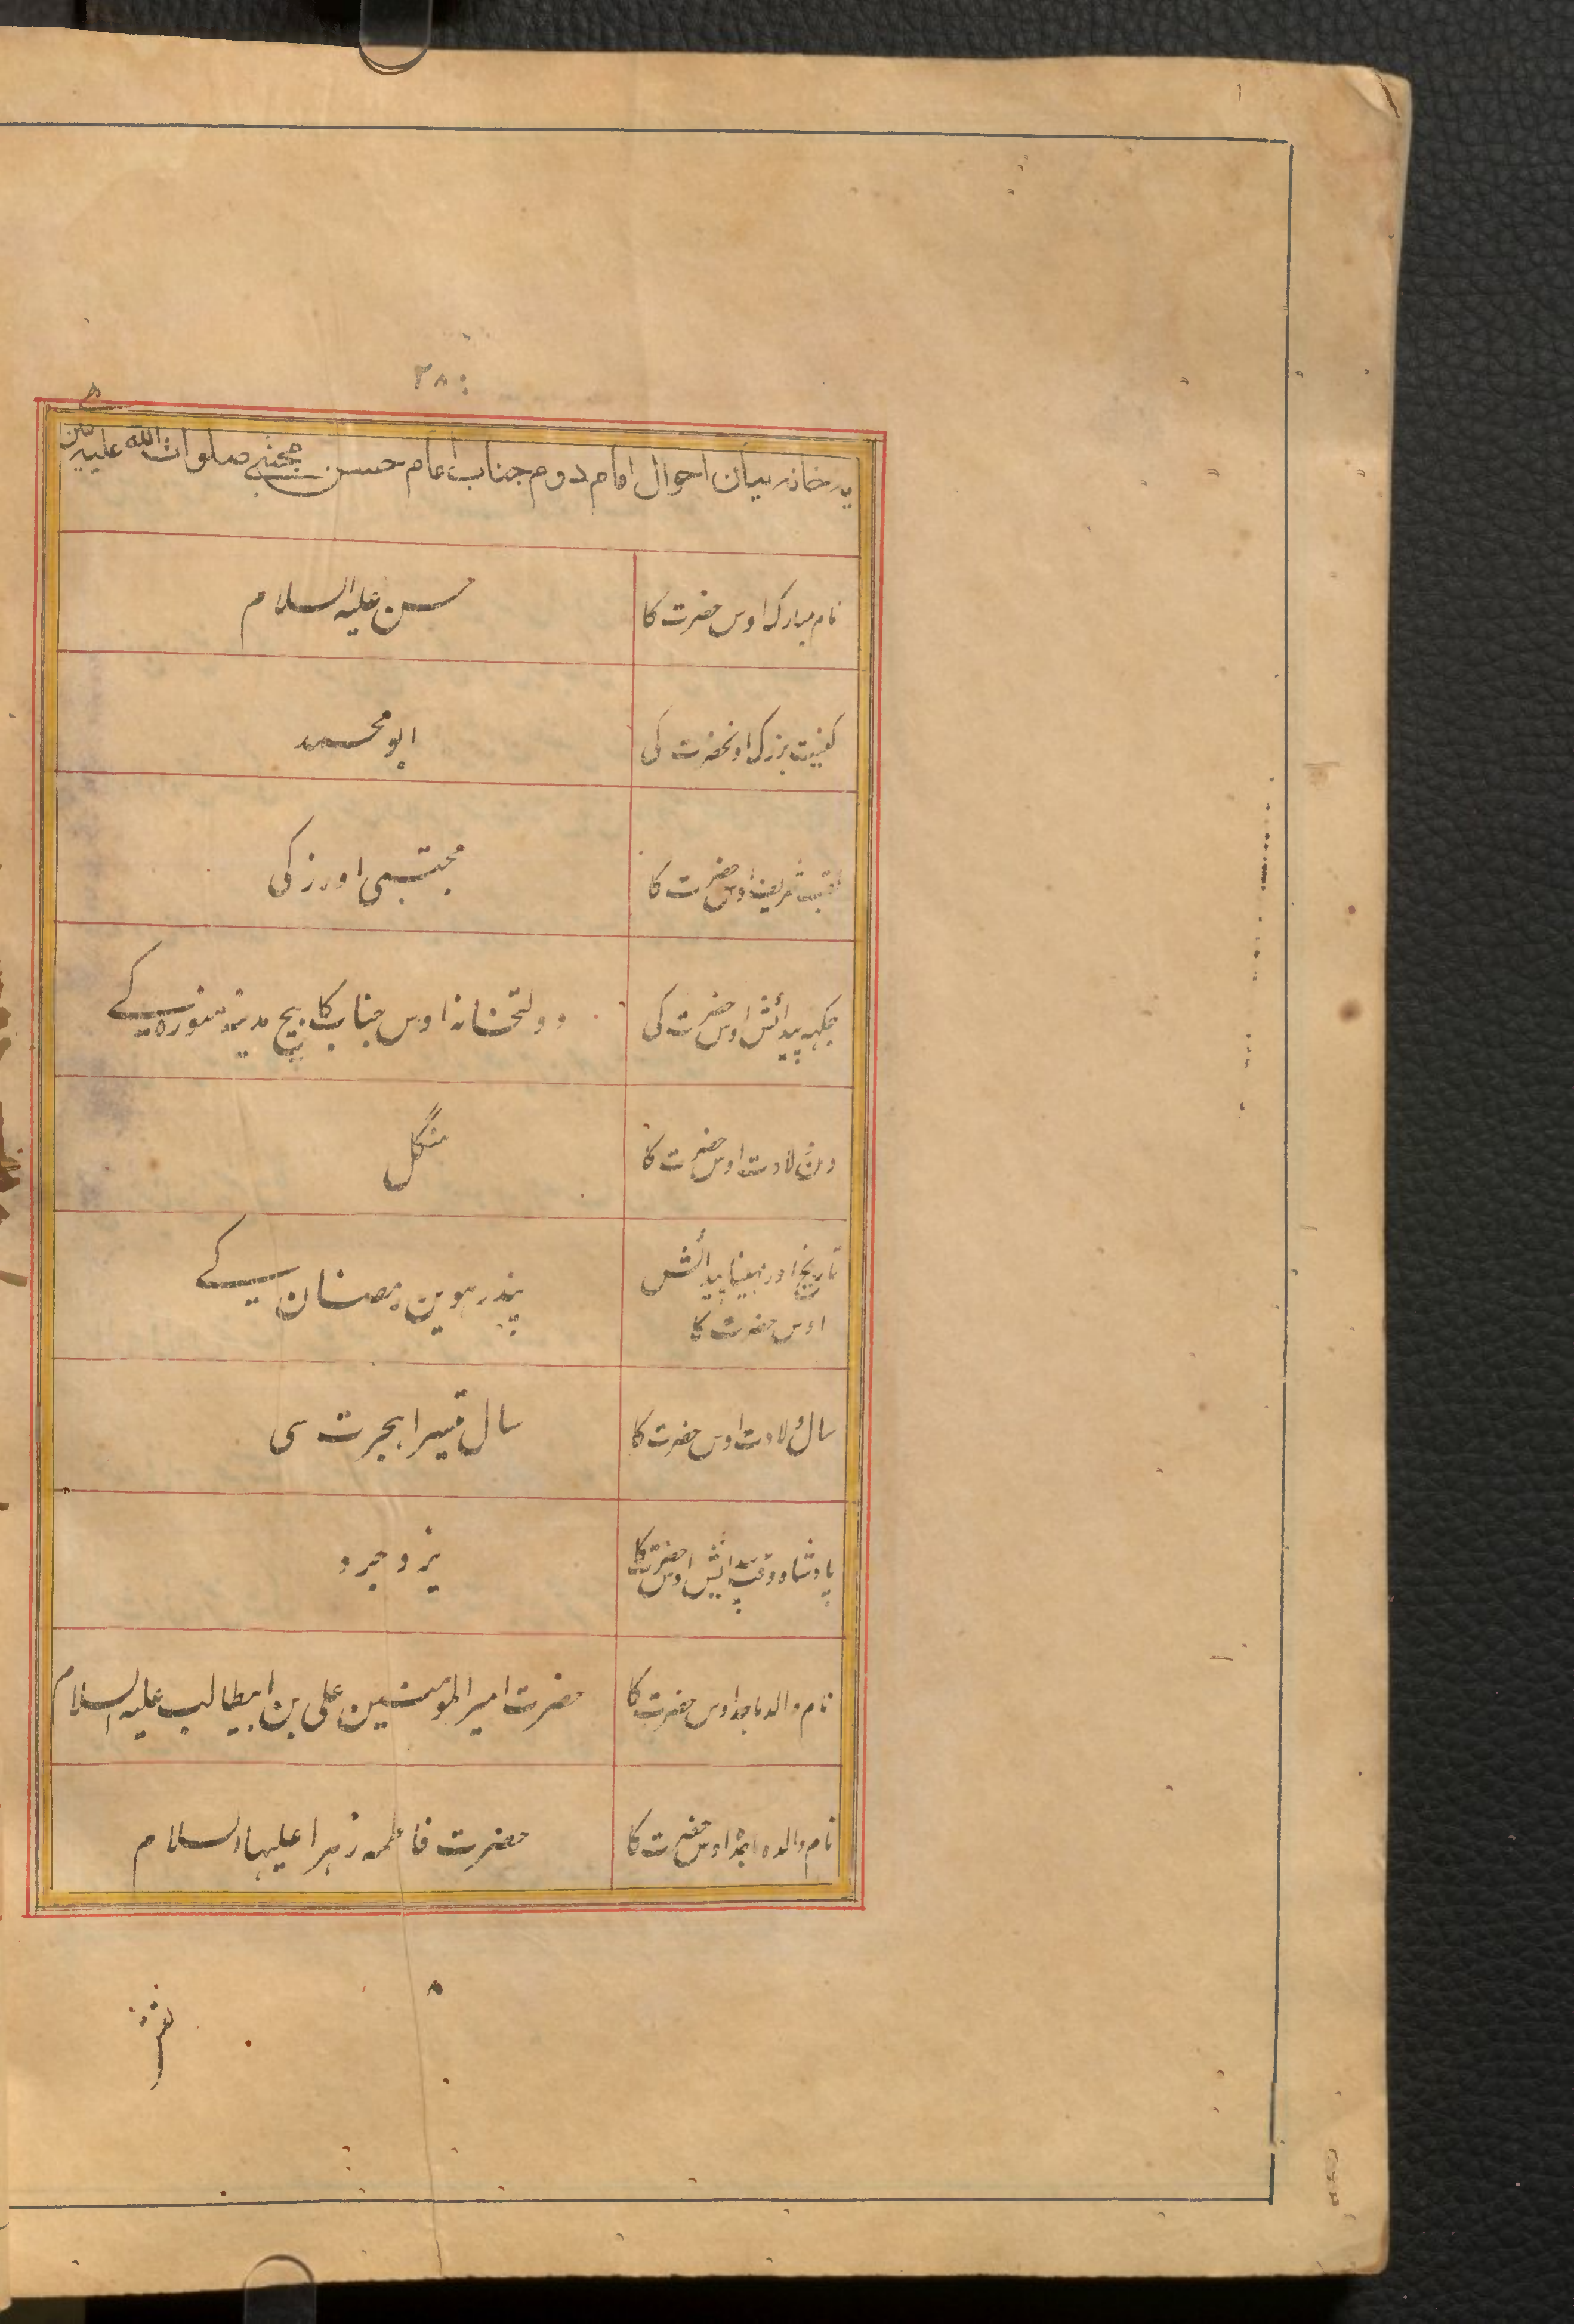 ۲۸
یہ خانہ بیان احوال امام دوم جناب امام حسن مجتبیٰ صلوات اللہ علیہ مین ہے
نام مبارک اوس حضرت کا
حسن علیہ السلام
کنیت بزرک اونحضرت کی
ابو محمد
لقب شریف اوس حضرت کا
مجتبی اور زکی
جکہہ پیدائش اوس حضرت کی
دولتخانہ اوس جناب کا بیچ مدینہ منورہ کے
دن ولادت اوس حضرت کا
منگل
تاریخ اور مہینا پیدائش
اوس حضرت کا
پندرہوین رمضان کے
سال ولادت اوس حضرت کا
سال تیسرا ہجرت سی
پادشاہ وقت پیدائش اوس حضرت کا
یزدجرد
نام والد ماجد اوس حضرت کا
حضرت امیر المومنین علی بن ابیطالب علیہ السلام
نام والدہ ماجدہ اوس حضرت کا
حضرت فاطمہ زہرا علیہا السلام